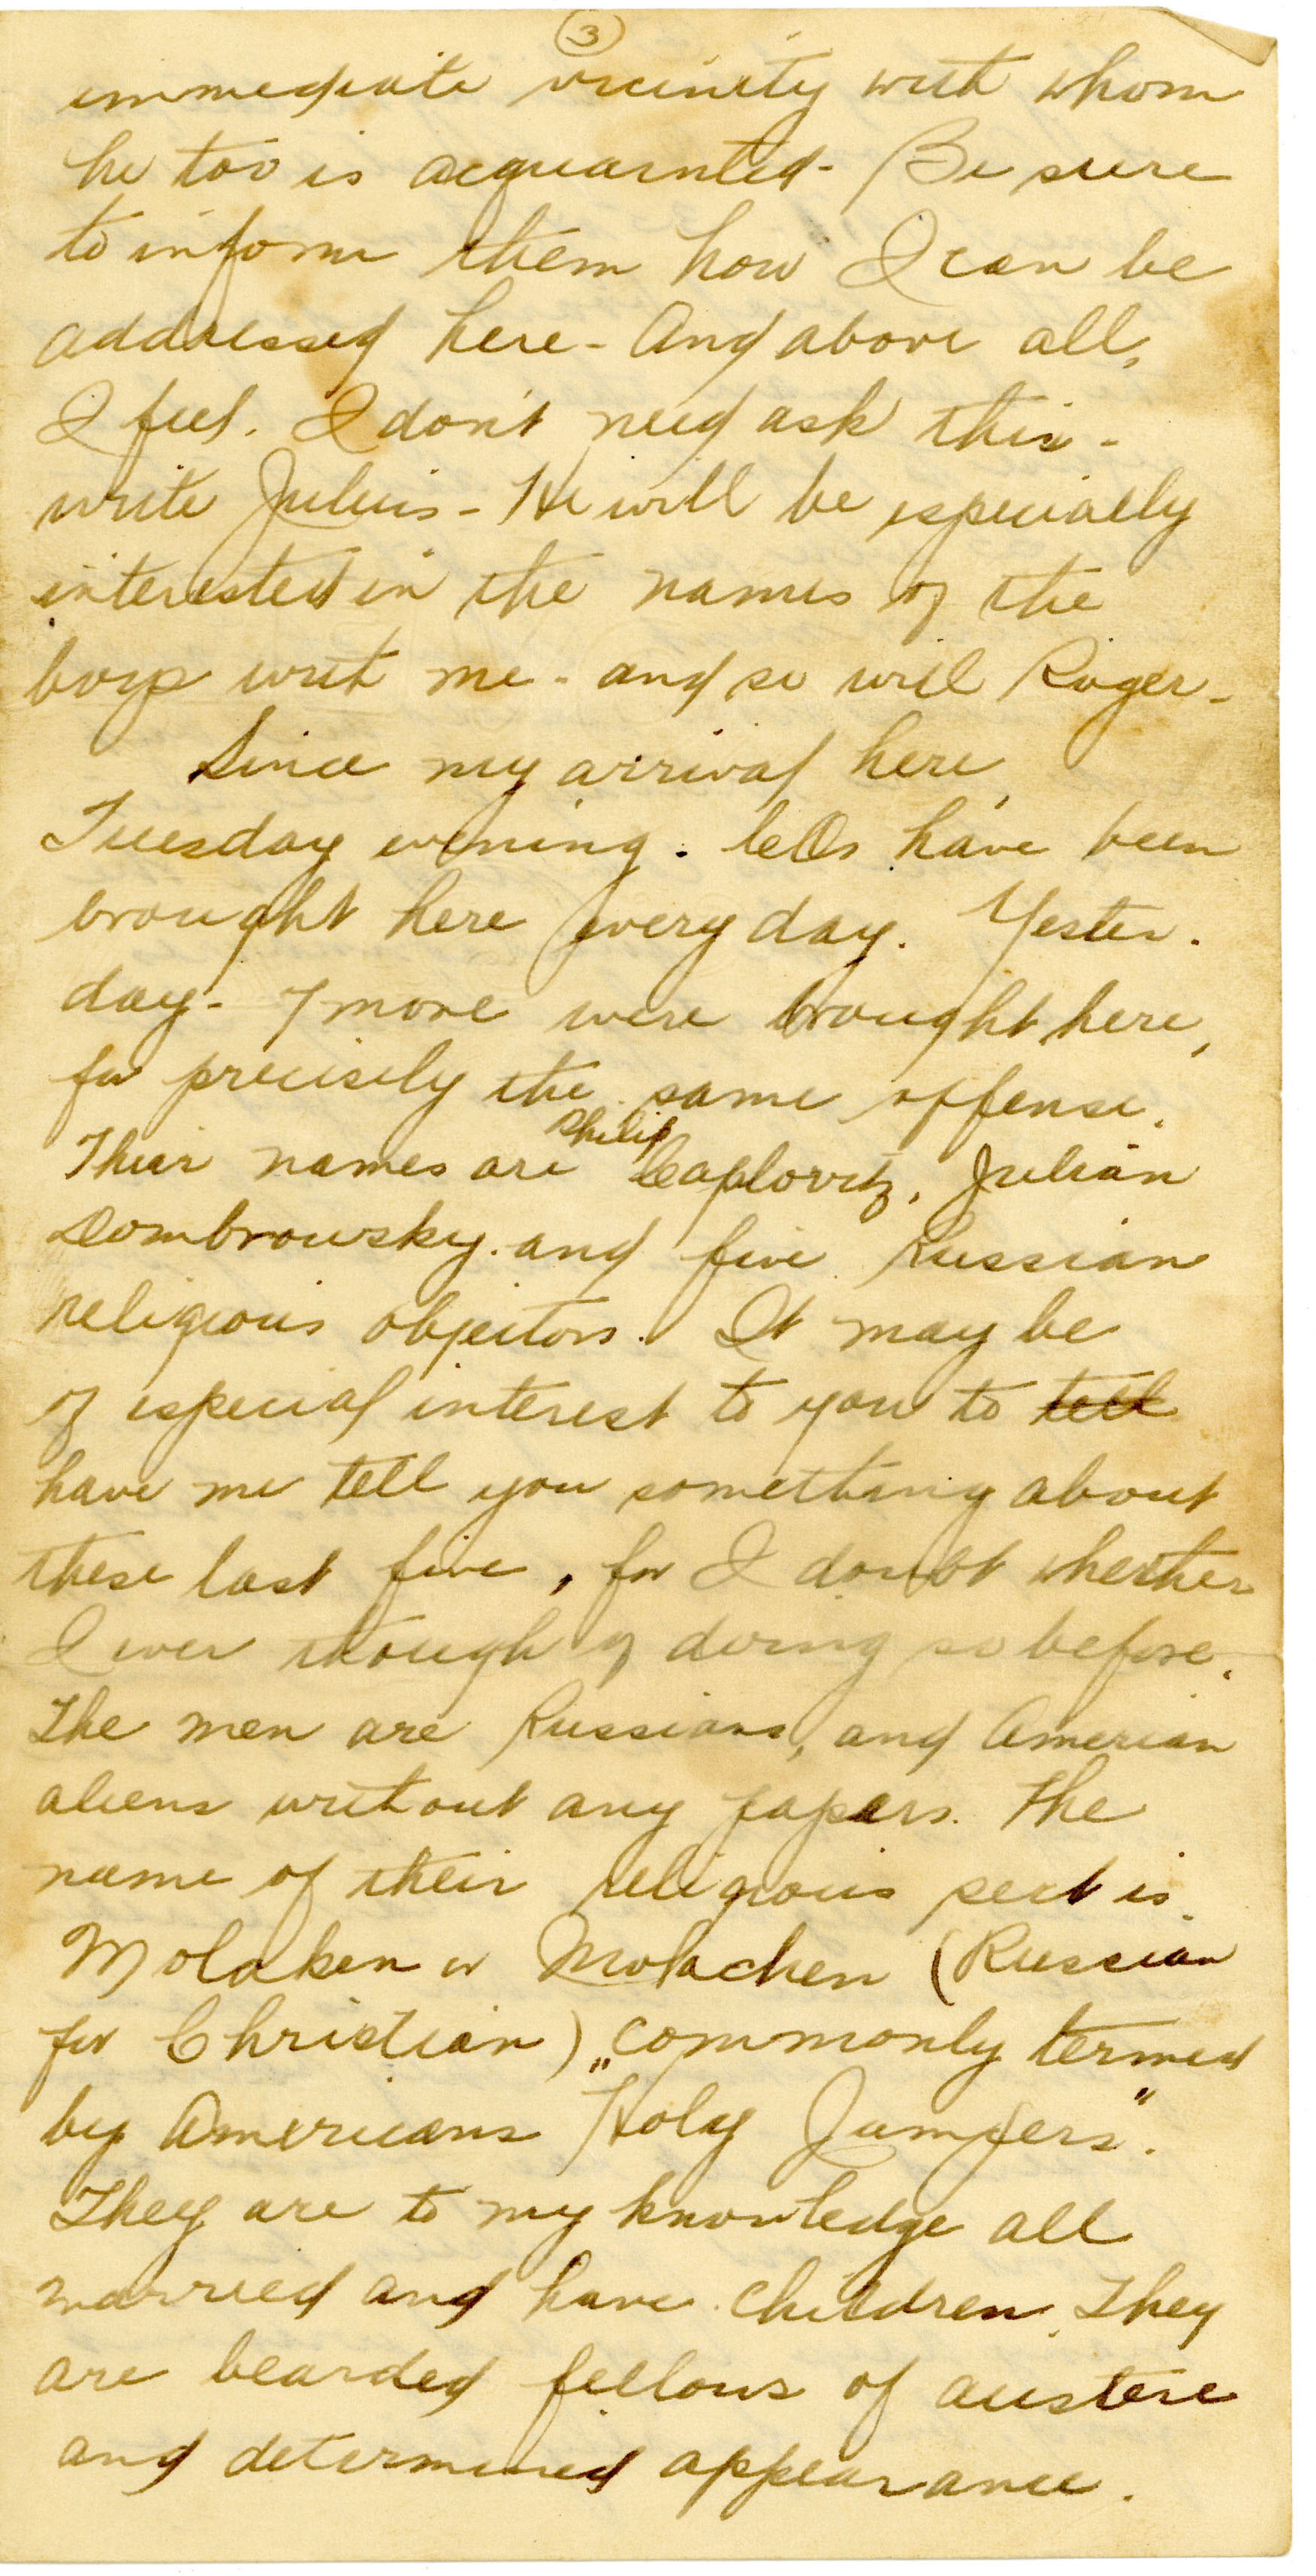 3
immediate vicinity with whom
he too is acquainted - Be sure
to inform them how I can be
addressed here - And above all,
I feel. I don't need ask this -
write Julius - He will be especially
interested in the names of the
boys with me - and so will Roger -
Since my arrival here,
Tuesday evening. COs have been
brought here every day. Yester-
day - 7 more were brought here,
for precisely the same offense.
Their names are Philip Caplovitz, Julian
Dombrowsky. and five Russian
religious objectors. It may be
of especial interest to you to tell
have me tell you something about
these last five, for I doubt whether
I ever though of doing so before.
The men are Russians, and Amerian
aliens without any papers. The
name of their religious sect is
Molaken or Molachen (Russian
for Christian) commonly termed
by Americans „Holy Jumpers".
They are to my knowledge all
married and have children. They
are bearded fellows of austere
and determined appearance.